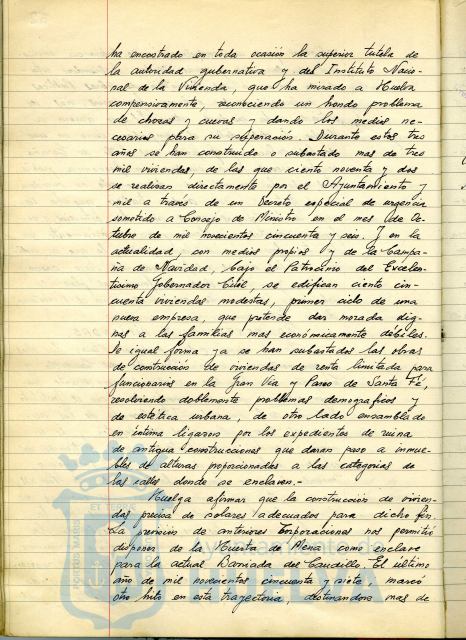 ha encostrado en toda ocasión la superior tutela de
la autoridad gubernativa y del Instituto Nacio-
nal de la Vivienda, que ha mirado a Huelva
compensivamente, reconociendo un hondo problema
de chozas y cuevas y dando los medios ne-
cesarios para su superación. Durante estos tres
años se han construido o subastado mas de tres
mil viviendas, de las que ciento noventa y dos
se realizan directamente por el Ayuntamiento y
mil a través de un Decreto especial de urgencia
sometido a Consejo de Ministro en el mes de Oc-
tubre de mil novecientos cincuenta y seis. Y en la
actualidad, con medios propios y de la Campa-
ña de Navidad, bajo el Patrocinio del Excelen-
tísimo Gobernador Civil, se edifican ciento cin-
cuenta viviendas modestas, primer ciclo de una
nueva empresa, que pretende dar morada dig-
nas a las familias mas económicamente débiles.
De igual forma ya se han subastados las obras
de construcción de viviendas de renta limitada para
funcionarios en la Gran Vía y Paseo de Santa Fé,
resolviendo doblemente problemas demograficos y
de estética urbana, de otro lado ensamblado
en íntima ligazon por los expedientes de ruina
de antigua construcciones que daran paso a inmue-
bles de alturas proporcionados a las categorias de
las calles donde se enclaven.-
Huelga afirmar que la construcción de vivien-
das precisa de solares adecuados para dicho fin.
La previsión de anteriores Corporaciones nos permitió
disponer de la Huerta de Mena como enclave
para la actual Barriada del Caudillo. El último
año de mil novecientos cincuenta y siete, marcó
otro hito en esta trayectoria, destinandose mas de